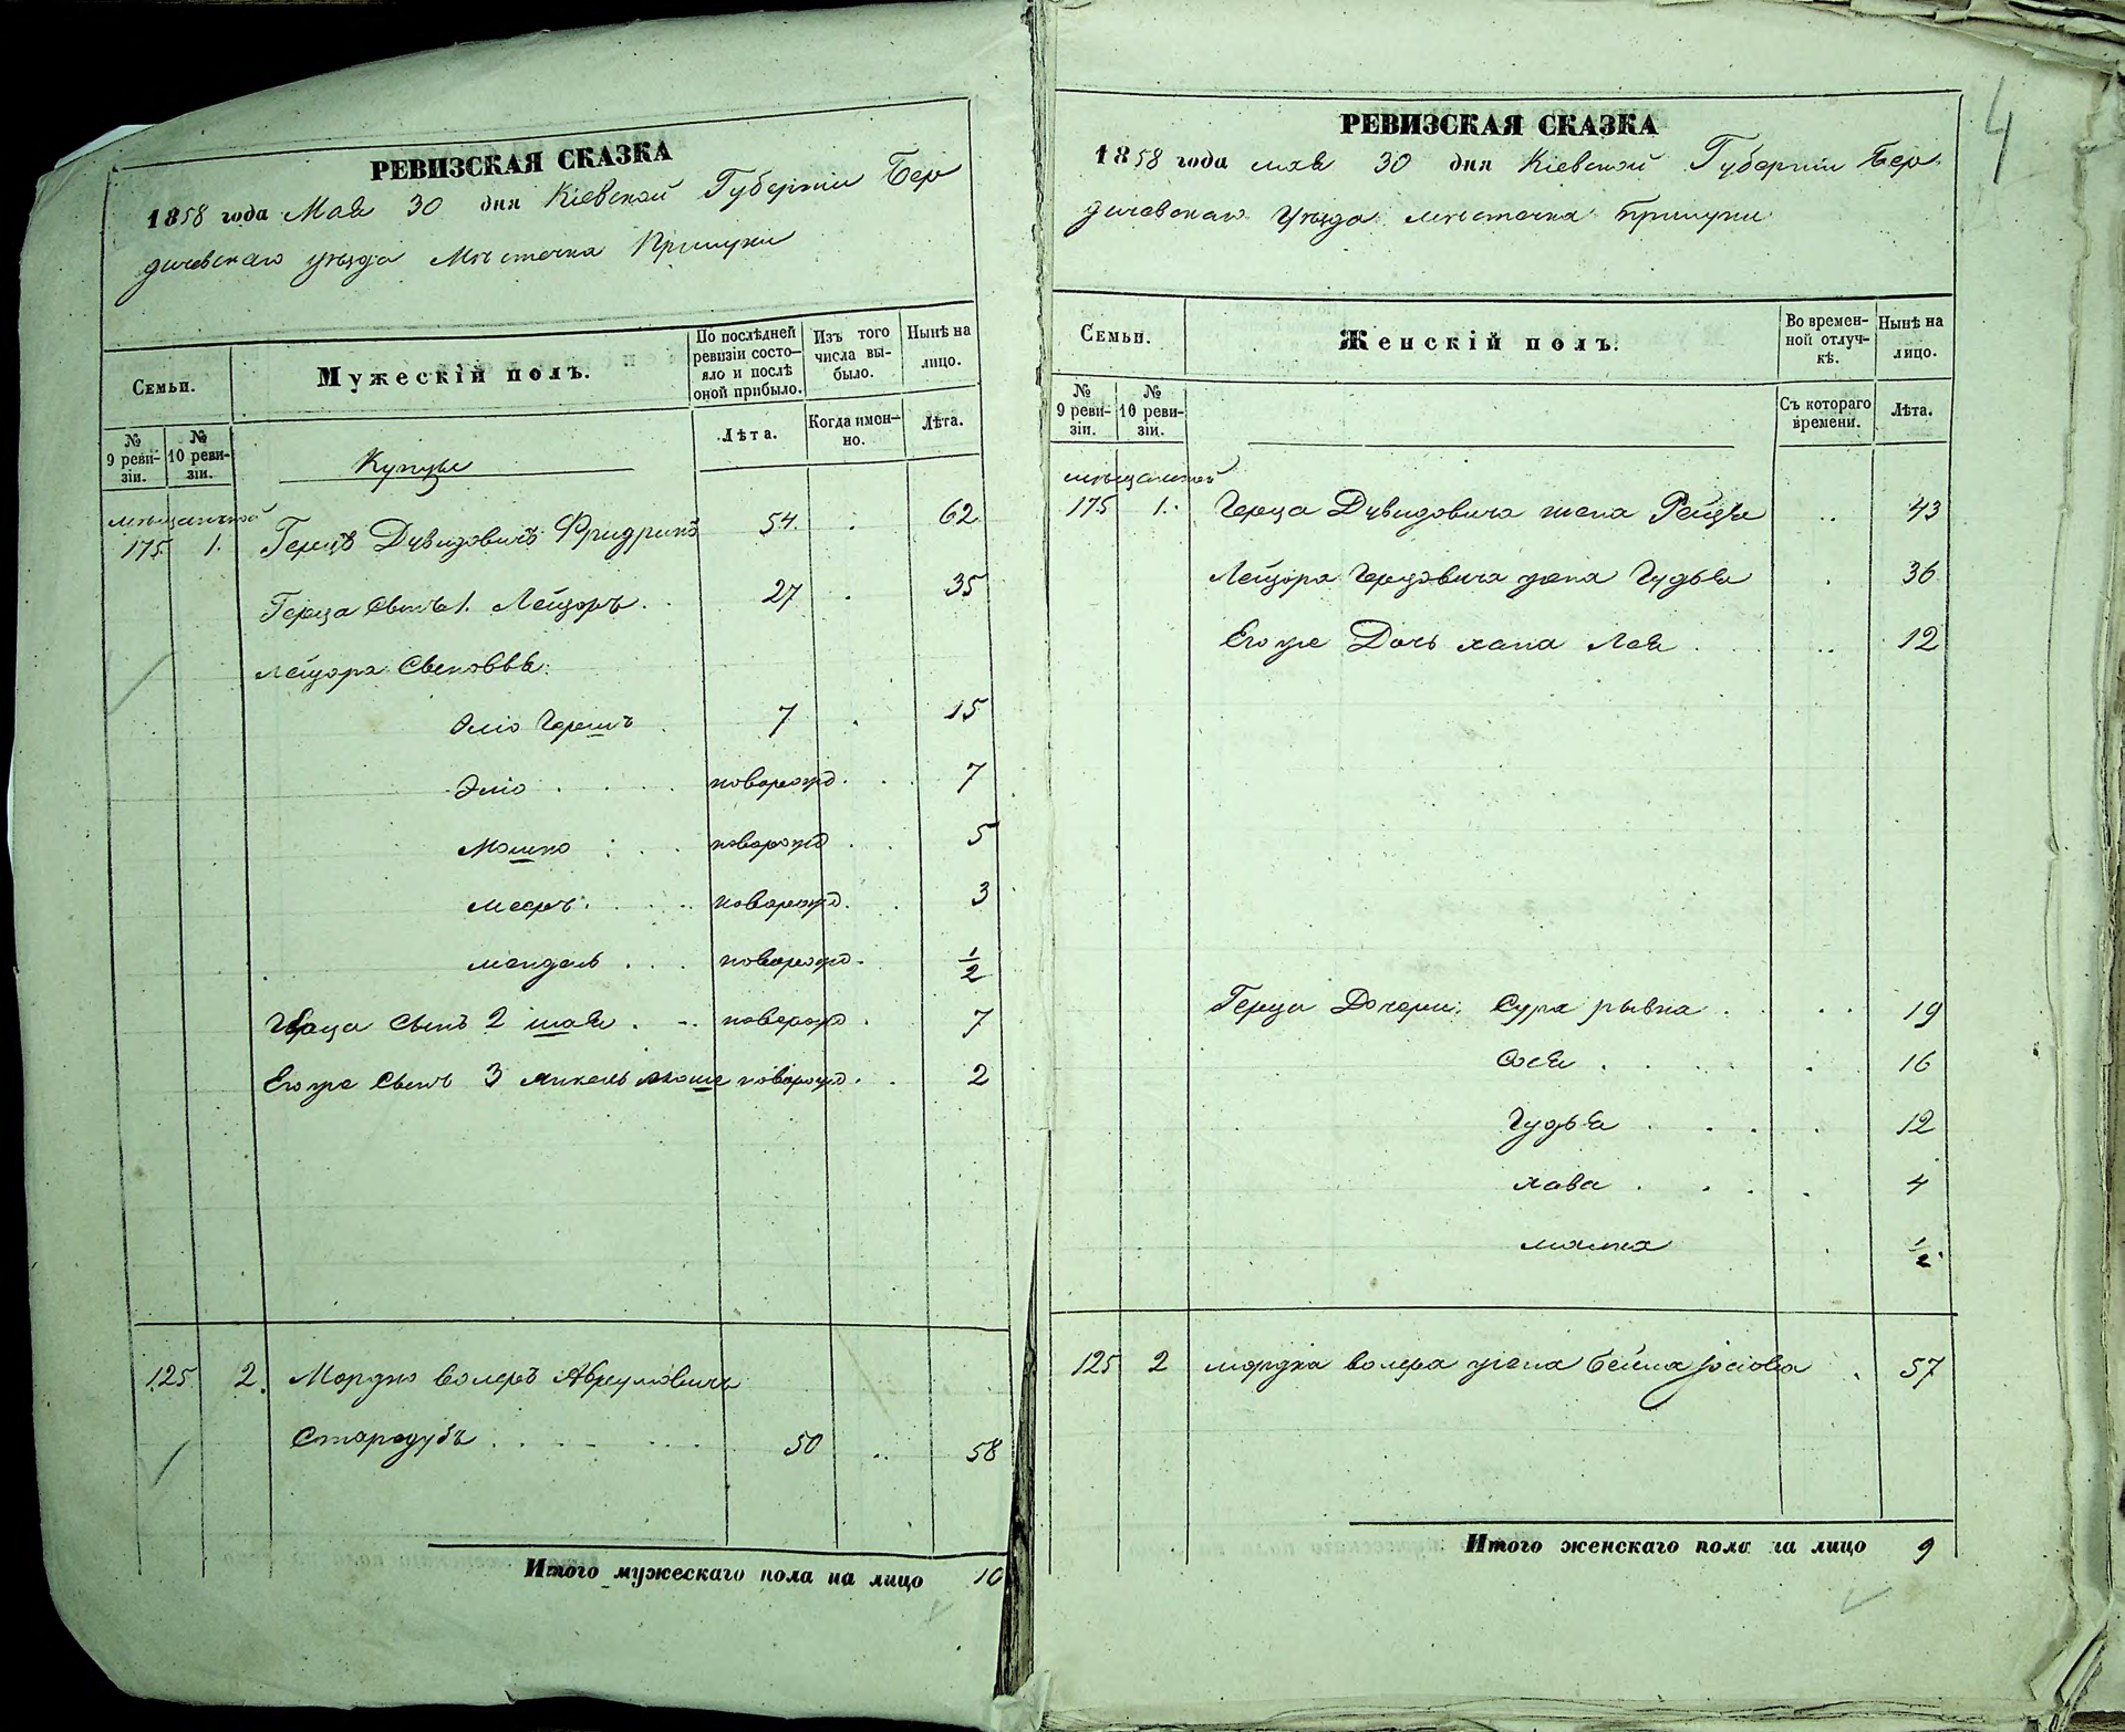 РЕВИЗСКАЯ СКАЗКА
1858 года Мая 30 дня Кіевской Губерніи Бер
дичевскаго уѣзда Мѣстечка Прилуки
Семьи.
Мужескій полъ.
По послѣдней ревизіи состо-
яло и послѣ оной прибыло.
Изъ того числа вы-
было.
Нынѣ на лицо.
№ 9 реви-
зіи.
№ 10 реви-
зіи.
Лѣта.
Когда имен-
но.
Лѣта.
Купцы
мѣщанской
175 1. Герцъ Дувидовичъ Фридрихъ 54. 62
Герца Сынъ 1. Лейзоръ 27 35
Лейзора Сыновья:
Эліо Гершъ 7 15
Эліо новорожд. 7
Мошко новорожд 5
Мееръ новорожд. 3
Мендель новорожд. 1/2
Герца Сынъ 2 шая новорожд. 7
Его же Сынъ 3 новорожд. 2
125 2. Мордко Волеръ Аврумовичъ
Стародубъ 50 58
Итого мужескаго пола на лицо 10
4
РЕВИЗСКАЯ СКАЗКА
1858 года мая 30 дня Кіевской Губерніи Бер
дичевскаго Уѣзда мѣстечка Прилуки
Семьи.
Женскій полъ.
Во времен-
ной отлуч-
кѣ.
Нынѣ на лицо.
№ 9 реви-
зіи.
№ 10 реви-
зіи.
Съ котораго времени.
Лѣта.
мѣщанской
175 1. Герца Дувидовича жена Рейзя 43
Лейзора Герцовича жена Гудья 36
Его же Дочь хана Лея 12
Герца Дочери: Сура рывка 19
Фося 16
Гудья 12
хава 4
малка 1/2
125 2 мордка волера жена бейла Іосіова 57
Итого женскаго пола на лицо 9